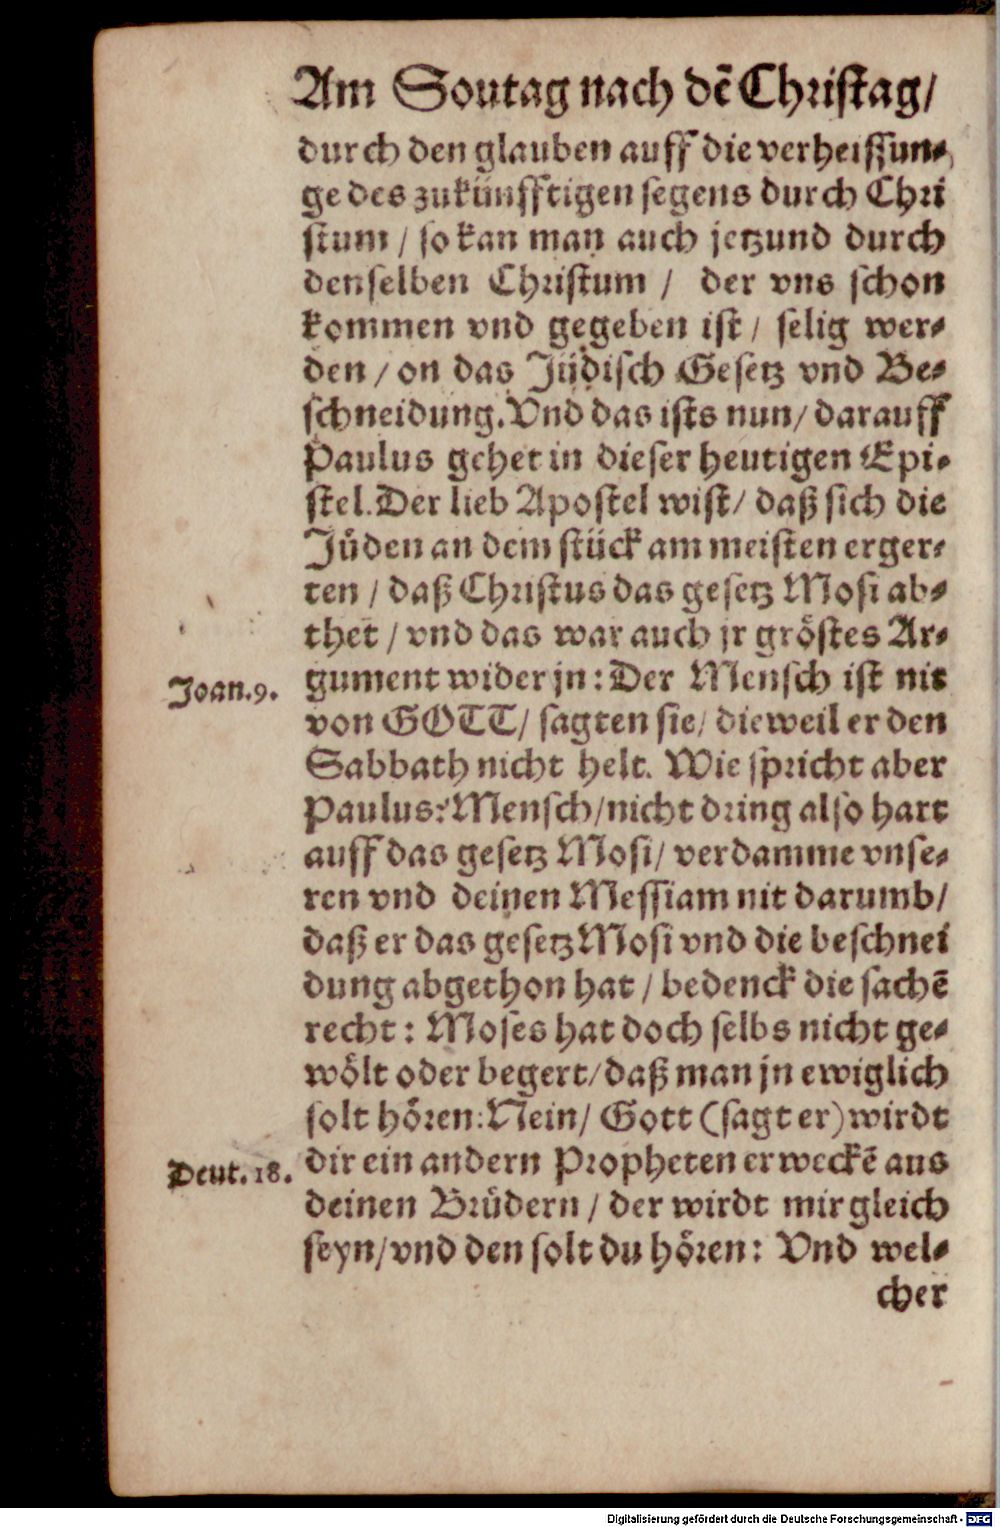 Am Soutag nach dẽ Christag/
durch den glauben auff die verheissun⸗
ge des zukünfftigen segens durch Chri
stum / so kan man auch jetzund durch
denselben Christum / der vns schon
kommen vnd gegeben ist / selig wer⸗
den / on das Jüdisch Gesetz vnd Be⸗
schneidung. Vnd das ists nun / darauff
Paulus gehet in dieser heutigen Epi⸗
stel. Der lieb Apostel wist / daß sich die
Jüden an dem stück am meisten erger⸗
ten / daß Christus das gesetz Mosi ab⸗
thet / vnd das war auch jr gröstes Ar⸗
Joan. 9. gument wider jn: Der Mensch ist nit
von GOTT / sagten sie / dieweil er den
Sabbath nicht helt. Wie spricht aber
Paulus? Mensch / nicht dring also hart
auff das gesetz Mosi / verdamme vnse⸗
ren vnd deinen Messiam nit darumb /
daß er das gesetz Mosi vnd die beschnei
dung abgethon hat / bedenck die sachẽ
recht: Moses hat doch selbs nicht ge⸗
wölt oder begert / daß man jn ewiglich
solt hören: Nein / Gott (sagt er) wirdt
Deut. 18. dir ein andern Propheten erweckẽ aus
deinen Brüdern / der wirdt mir gleich
seyn / vnd den solt du hören: Vnd wel⸗
cher
Digitalisierung gefördert durch die Deutsche Forschungsgemeinschaft - DFG